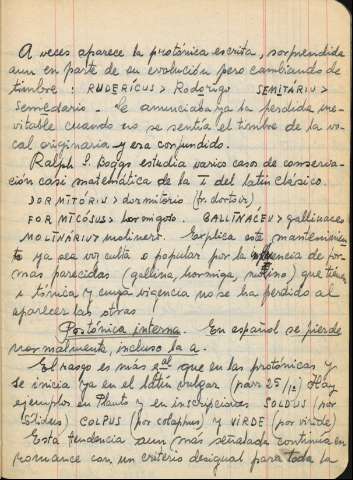 A veces aparece la protónica escrita, sorprendida
aun en parte de su evolución pero cambiando de
timbre: RUDERICUS > Rodorigo SEMITARIU >
semedario. Se anunciaba ya la perdida ine-
vitable cuando no se sentía el timbre de la vo-
cal originaria y era confundido.
Ralph S. Boggs estudia varios casos de conserva-
ción casi matemática de la I del latín clásico.
DORMITŌRIU > dormitorio (fr. dortoir)
FORMICŌSUS > hormigoso. GALLINACEU > gallinaceo
MOLINARIU > molinero. Explica este mantenimien
to ya sea voz culta o popular por la influencia de for-
mas parecidas (gallina, hormiga, molino) que tienen
i tónica y cuya vigencia no se ha perdido al
aparecer las otras
Postónica interna. En español se pierde
normalmente, incluso la a.
El rasgo es más gral que en las protónicas y
se inicia ya en el latín vulgar (párr 25/1º) Hay
ejemplos en Plauto y en inscripciones SOLDUS (por
sŏlidus) COLPUS (por colaphus) y VIRDE (por viride)
Esta tendencia aun más señalada continúa en
romance con un criterio desigual para toda la